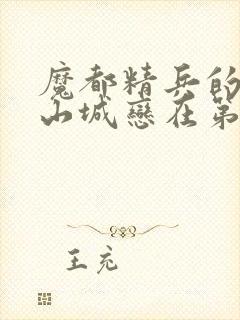 魔都精兵的
山城戀在第
王充